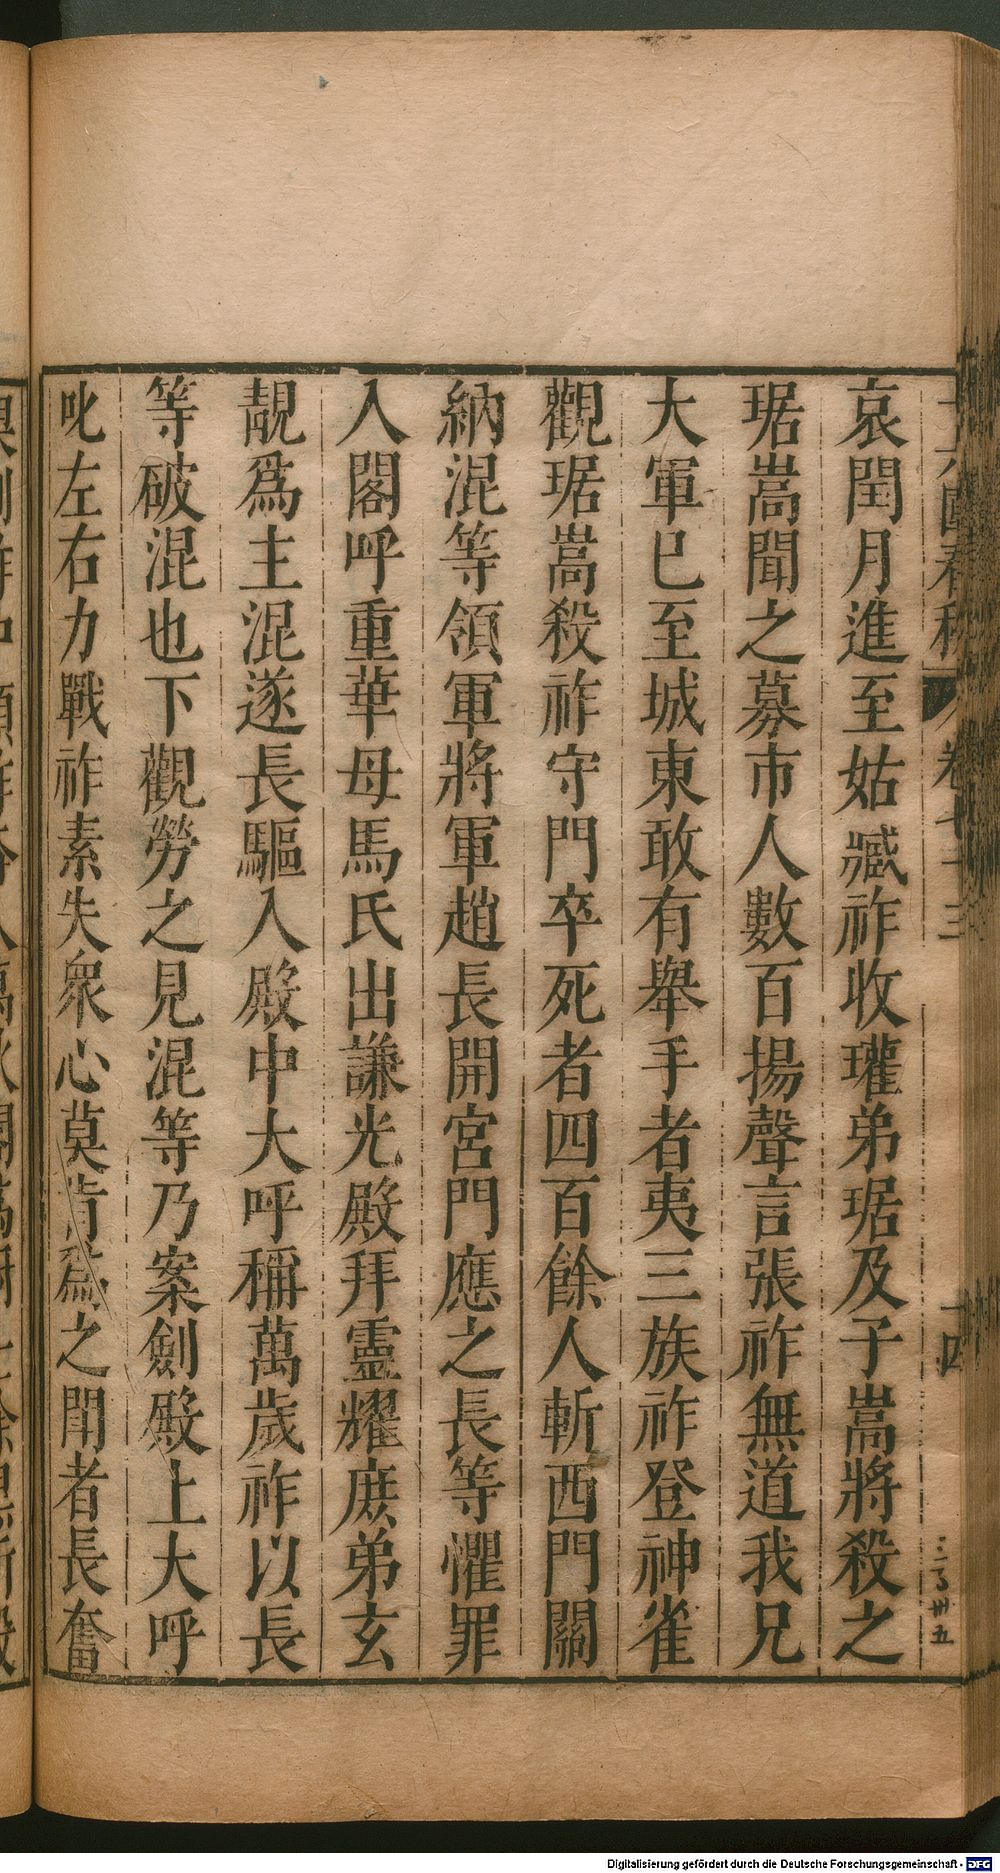 哀閏月進至姑臧祚收瓘弟琚及子嵩將殺之
琚嵩聞之募市人數百揚聲言張祚無道我兄
大軍已至城東敢有舉手者夷三族祚登神雀
觀琚嵩殺祚守門卒死者四百餘人斬西門關
納混等領軍將軍趙長開宮門應之長等懼罪
入閤呼重華母馬氏出謙光殿拜靈耀庶弟玄
靚爲主混遂長驅入殿中大呼稱萬歲祚以長
等破混也下觀勞之見混等乃案劍殿上大呼
叱左右力戰祚素失衆心莫肯爲之鬥者長奮
Digitalisierung gefördert durch die Deutsche Forschungsgemeinschaft - DFG